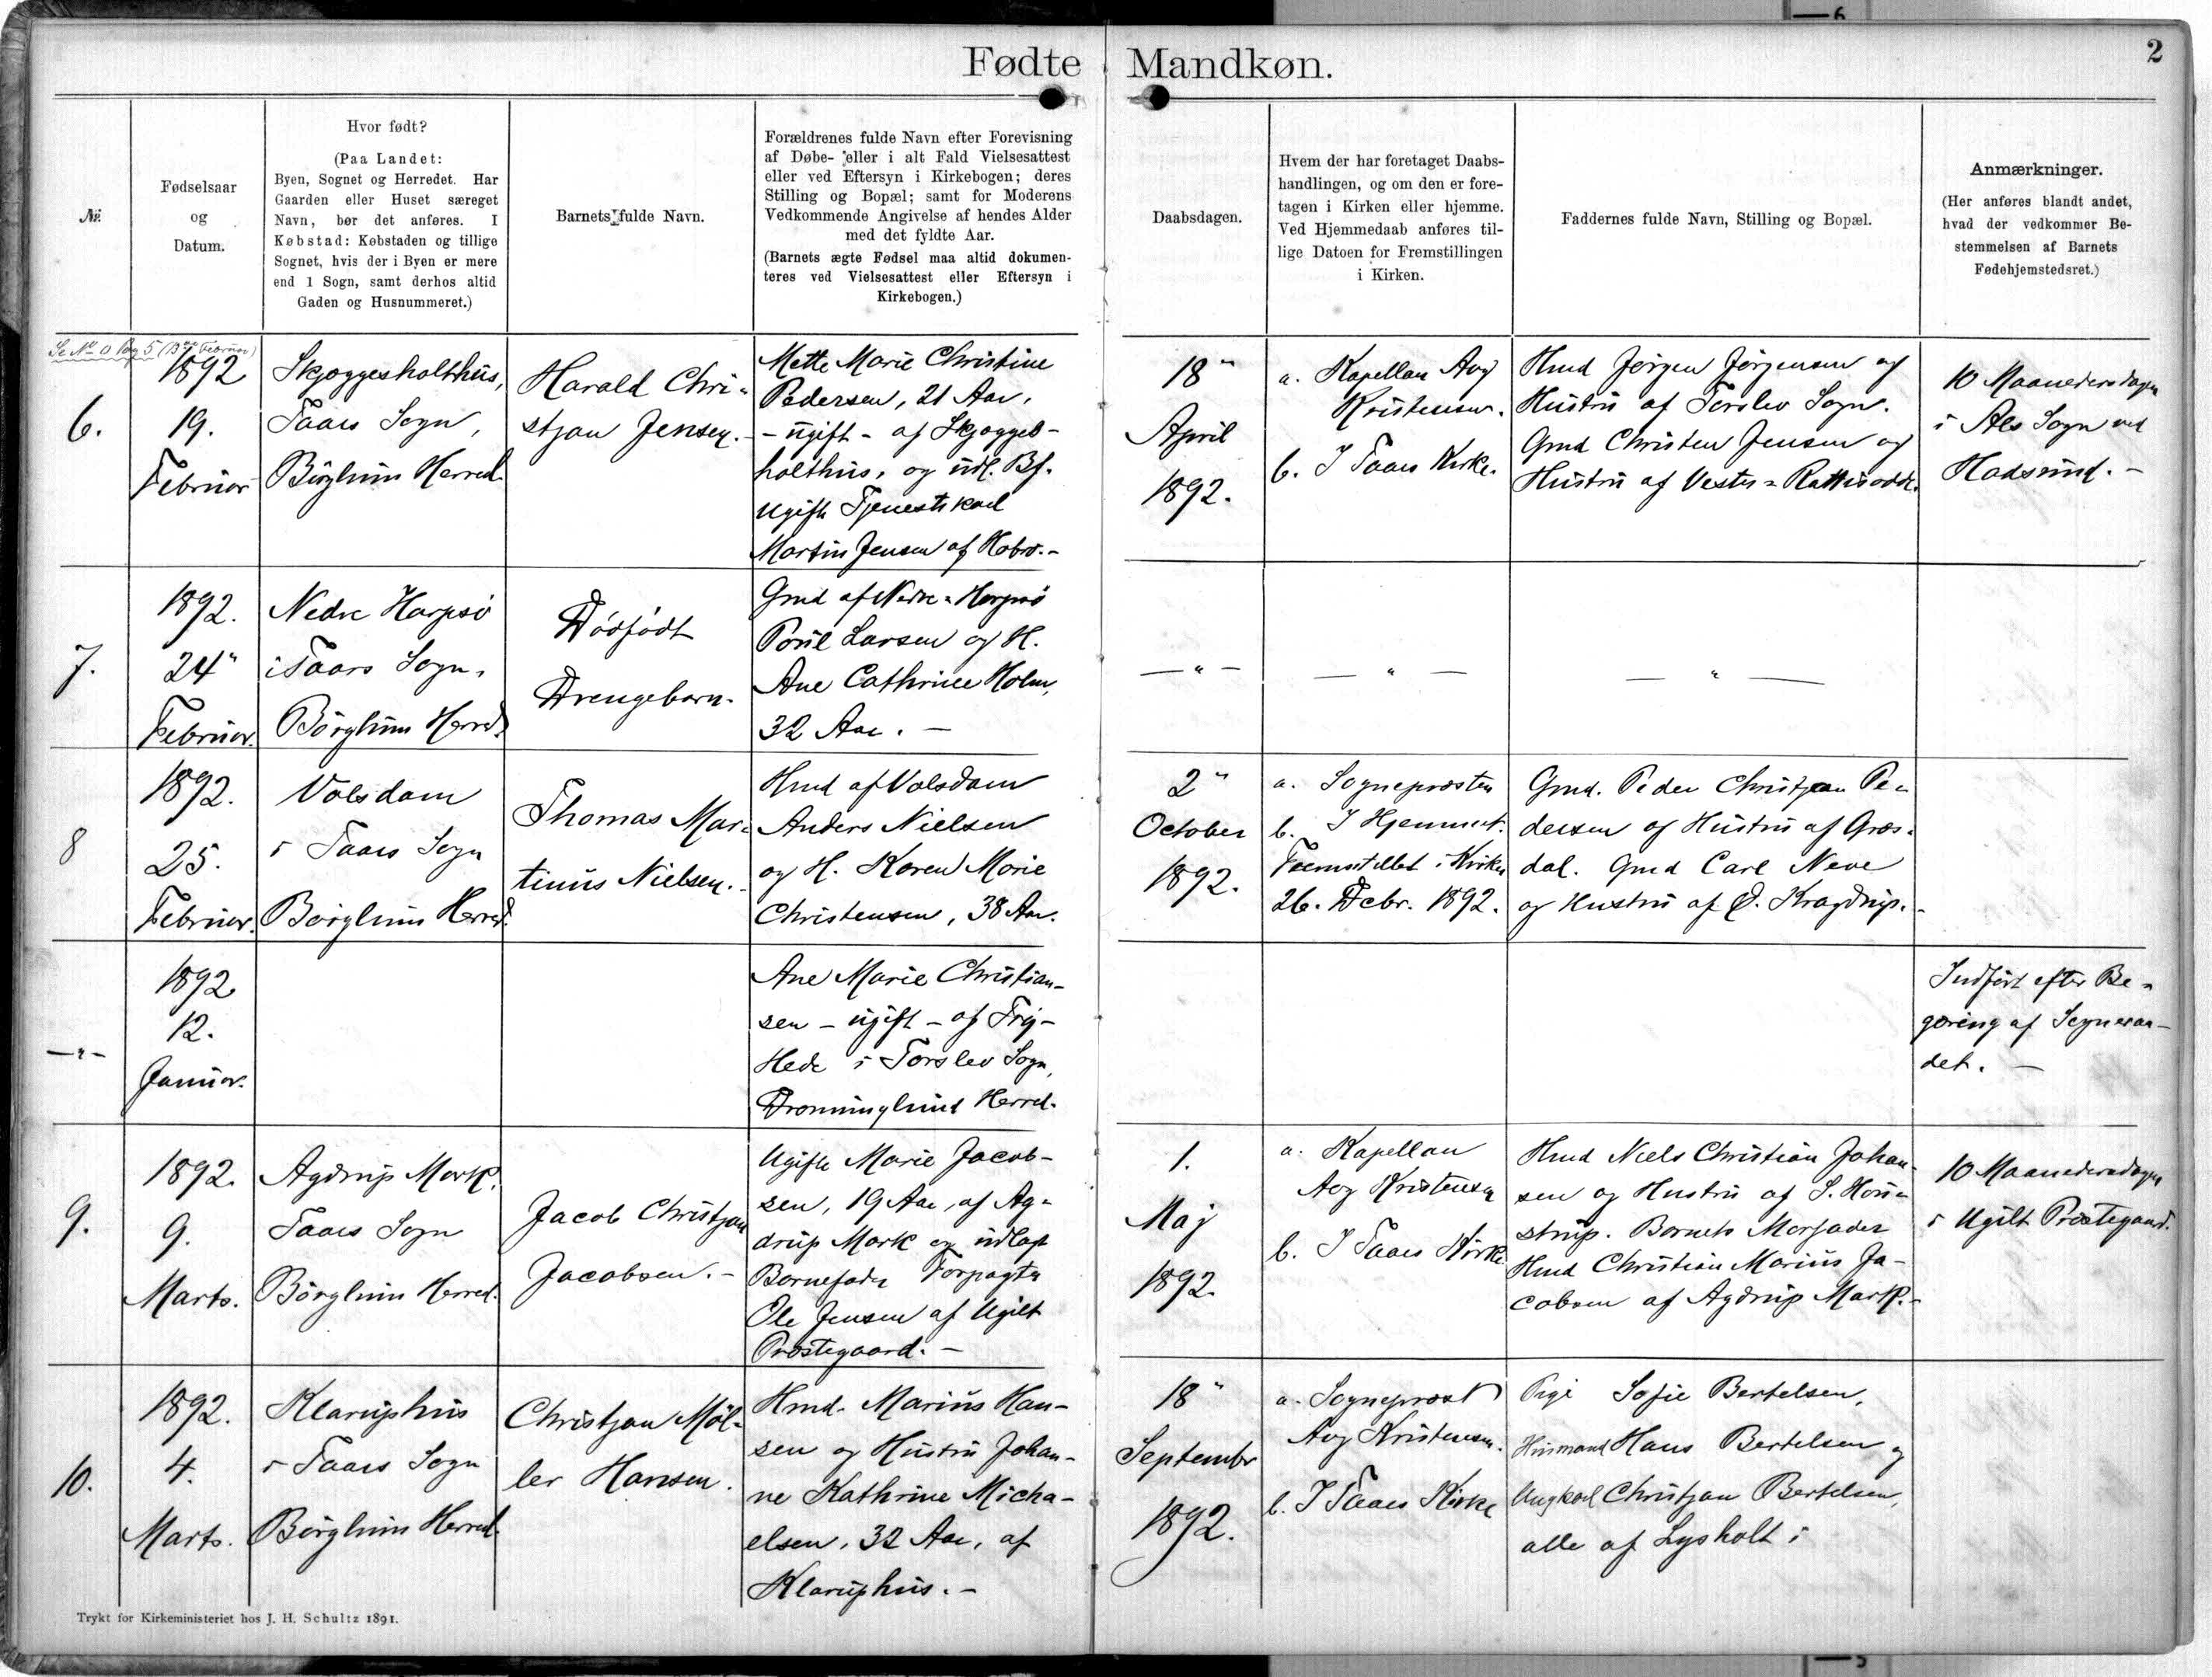 Fødte Mandkøn.
2
Nr.
Fødselsaar
og
Datum.
Hvor født?
(Paa Landet:
Byen, Sognet og Herredet. Har
Gaarden eller Huset særeget
Navn, bør det anføres. I
Købstad: Købstaden og tillige
Sognet, hvis der i Byen er mere
end 1 Sogn, samt derhos altid
Gaden og Husnummeret.)
Barnets fulde Navn.
Forældrenes fulde Navn efter Forevisning
af Døbe- eller i alt Fald Vielsesattest
eller ved Eftersyn i Kirkebogen; deres
Stilling og Bopæl; samt for Moderens
Vedkommende Angivelse af hendes Alder
med det fyldte Aar.
(Barnets ægte Fødsel maa altid dokumen-
teres ved Vielsesattest eller Eftersyn i
Kirkebogen.)
Daabsdagen.
Hvem der har foretaget Daabs-
handlingen, og om den er fore-
tagen i Kirken eller hjemme.
Ved Hjemmedaab anføres til-
lige Datoen for Fremstillingen
i Kirken.
Faddernes fulde Navn, Stilling og Bopæl.
Anmærkninger.
(Her anføres blandt andet,
hvad der vedkommer Be-
stemmelsen af Barnets
Fødehjemstedsret.)
6.
1892
19.
Februar
Skjoggesholthus,
Taars Sogn,
Börglum Herred.
Harald Chri-
stjan Jensen.
Mette Marie Christine
Pedersen, 21 Aar,
- ugift - af Skjogges-
holthus, og udl. Bf.
Ugift Tjenestekarl
Martin Jensen af Hobro.-
18"
April
1892.
a. Kapellan Aug
Kristensen.
b. I Taars Kirke.
Hmd Jörgen Jörgensen og
Hustru af Torslev Sogn.
Gmd Christen Jensen og
Hustru af Vester-
10 Maanedersdagen
i Als Sogn ved
Hadsund. -
7.
1892.
24"
Februar.
Nedre Harpsö
i Taars Sogn,
Börglum Herred.
Dödfödt
Drengebarn.
Gmd af Nedre-Harpsö
Poul Larsen og H.
Ane Cathrine Holm,
32 Aar. -
- " -
- " -
- " -
8
1892.
25.
Februar.
Volsdam
i Taars Sogn
Börglum Herred.
Thomas Mar-
tinus Nielsen.
Hmd af Volsdam
Anders Nielsen
og H. Karen Marie
Christensen, 38 Aar.
2"
October
1892.
a. Sognepræsten
b. I Hjemmet.
Fremstillet i Kirken
26. Decbr. 1892.
Gmd. Peder Christjan Pe-
dersen og Hustru af Græs-
dal. Gmd Carl Neve
og Hustru af Ø. Kragdrup.
- " -
1892
12.
Januar.
Ane Marie Christian-
sen - ugift - af Trij-
Hede i Torslev Sogn,
Dronninglund Herred.
Indfört efter Be-
gæring af Sogneraa-
det. -
9.
1892.
9.
Marts.
Agdrup Mark.
Taars Sogn
Börglum Herred.
Jacob Christjan
Jacobsen. -
Ugifte Marie Jacob-
sen, 19 Aar, af Ag-
drup Mark og udlagt
Barnefader Forpagter
Ole Jensen af Ugilt
Præstegaard. -
1.
Maj
1892.
a. Kapellan
Aug Kristensen
b. I Taars Kirke
Hmd Niels Christian Johan-
sen og Hustru af S. Hou-
strup. Barnets Morfader
Hmd Christian Marius Ja-
cobsen af Agdrup Mark.-
10 Maanedersdagen
i Ugilt Præstegaard.
10.
1892.
4.
Marts.
Klaruphus
i Taars Sogn
Börglum Herred.
Christjan Möl-
ler Hansen.
Hmd. Marius Han-
sen og Hustru Johan-
ne Kathrine Micha-
elsen, 32 Aar, af
Klaruphus. -
18"
September
1892.
a. Sognepræst
Aug Kristensen.
b. I Taars Kirke
Pige Sofie Bertelsen,
Husmand Hans Bertelsen og
Ungkarl Christjan Bertelsen,
alle af Lysholt i
Trykt for Kirkeministeriet hos J. H. Schultz 1891.